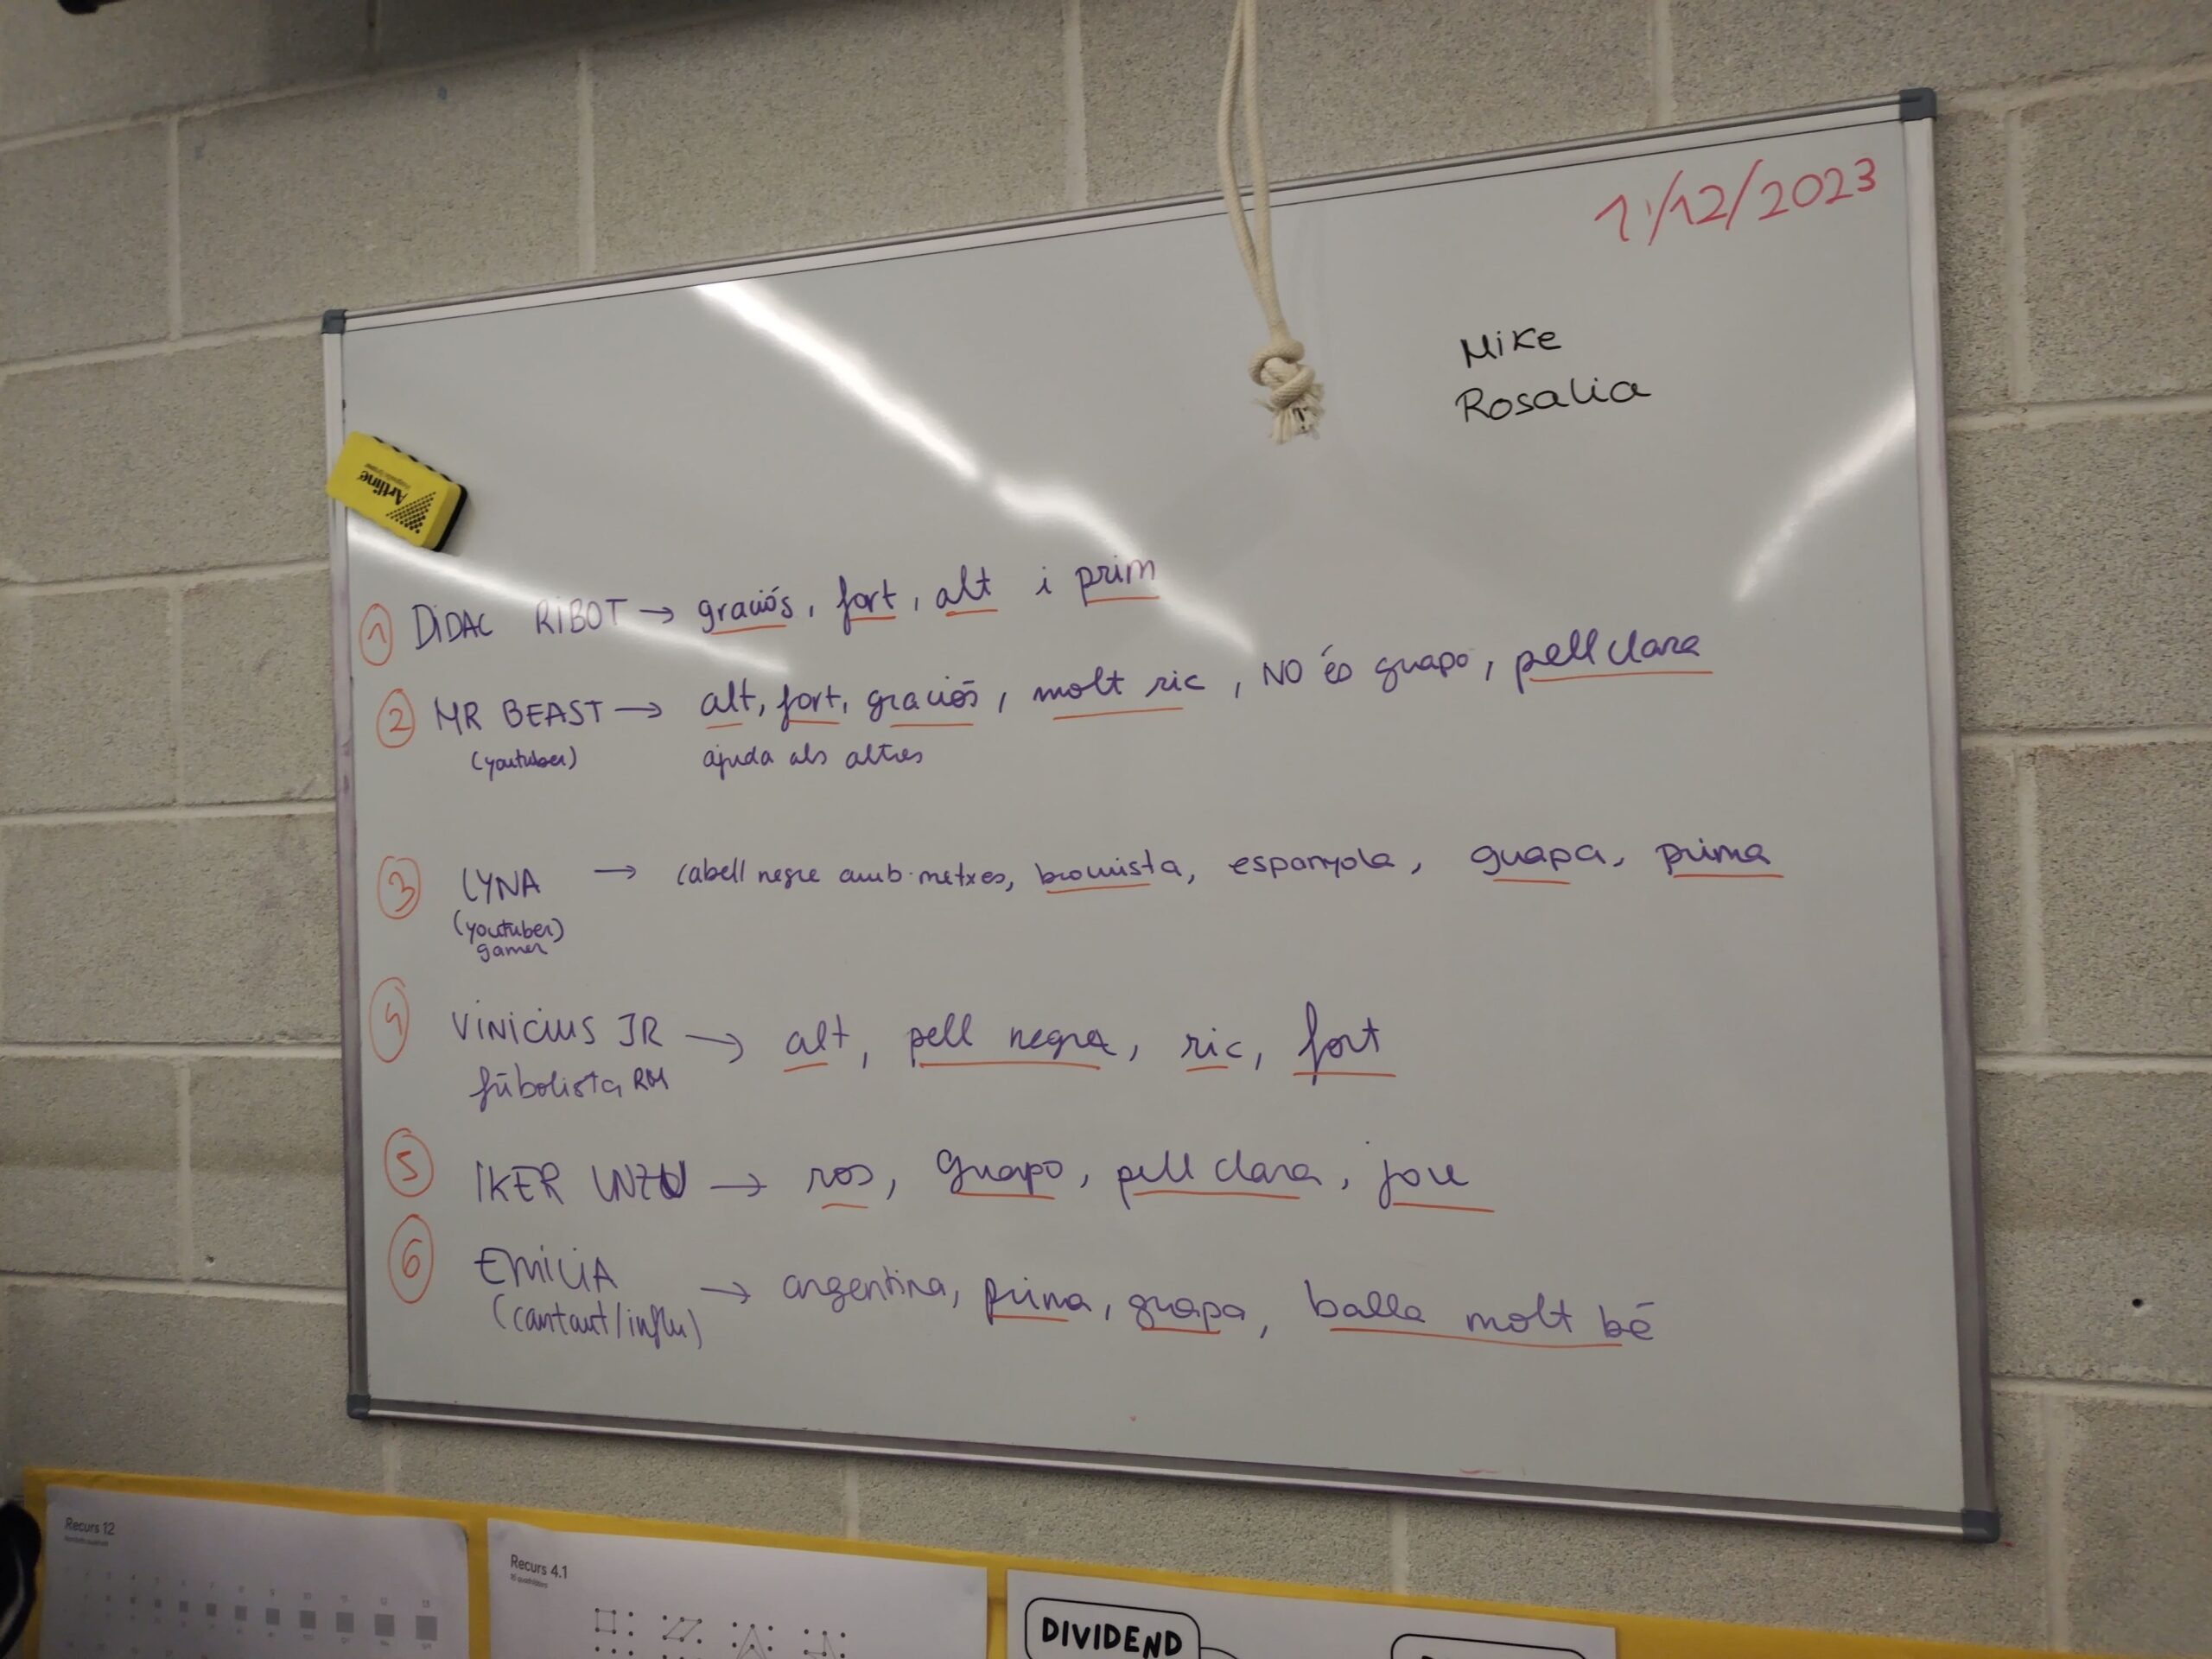 1/12/2023
Mike
Rosalia
Artline
① DiDAC RIBOT → graciós, fort, alt i prim
② MR BEAST → alt, fort, graciós, molt ric, NO és guapo, pell clara
(youtuber) ajuda als altres
③ LYNA → cabell negre amb metxes, bromista, espanyola, guapa, prima
(youtuber)
gamer
④ VINICIUS JR → alt, pell negra, ric, fort
fúbolista RM
⑤ IKER UNZU → ros, guapo, pell clara, jove
⑥ EMILIA → argentina, prima, guapa, balla molt bé
(cantant/influ)
Recurs 12
Recurs 4.1
DIVIDEND